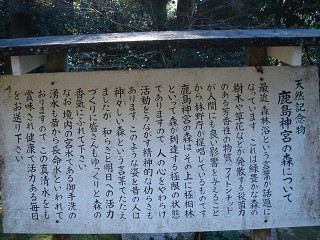 天然記念物
鹿島神宮の森について
最近、森林浴という言葉が話題に
なっています。これは緑豊かな森の
樹木や草花などが発散する殺菌力
のある芳香性の物質、フィトンチッド
が人間にも良い影響を与えること
から林野庁が提唱しているものです
鹿島神宮の森は、その上に極相林
といって森が到達する極限の状態
でありますので、人の心をやわらげ
活動をうながす精神的な働らきも
あります。このような姿を昔の人は
神々しい森という言葉でたたえ
ましたが、和らぎと明日への活力
づくりに皆さんもゆっくりと森の
香気にふれて下さい。
なお、境内の宮水である御手洗の
湧水も昔から延命水といわれて
おりますのでこの真清水をも
賞味され健康で活力ある毎日
をお送り下さい。